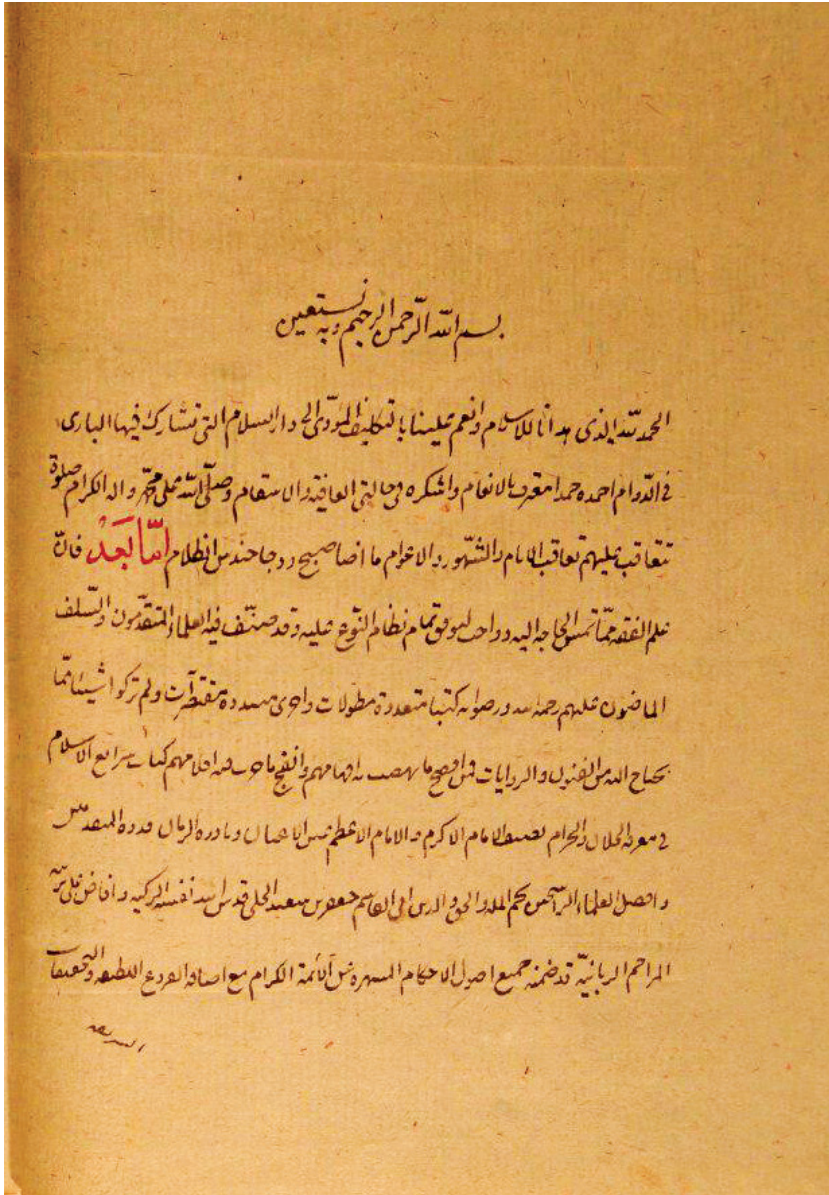 بسم الله الرحمن الرحیم وبه نستعین
الحمد لله الذی هدانا للاسلام وانعم علینا بالتکلیف المؤدی الی دار السلام التی تشارک فیها الباری
فی الدوام احمده حمد معترف بالانعام واشکره فی حالتی العافیة والاسقام وصلی الله علی محمد واله الکرام صلوة
تتعاقب علیهم تعاقب الایام والشهور والاعوام ما اضا صبح ودجا حندس الظلام امّا بَعد فانّ
علم الفقه ممّا تمس الحاجه الیه وواجب تمام نظام النوع علیه وقد صنّف فیه العلماء المتقدمون والسلف
الماضون علیهم رحمة الله ورضوانه کتبا متعددة مطولات واخری مختصرات ولم یترکوا شیئا ممّا
یحتاج الیه من الفنون والروایات فمن افصح ما افهامهم وانفع ما اقلامهم کتاب شرایع الاسلام
فی معرفه الحلال والحرام تصنیف الامام الاکرم والامام الاعظم عین الاعیان ونادرة الزمان قدوة المتقدمین
وافضل العلماء الراسخین نجم المله والحق والدین ابی القاسم جعفر بن سعید الحلی قدس الله نفسه الزکیه وافاض علی تربته
المراحم الربانیّة قد ضمنه جمیع اصول الاحکام عن الائمة الکرام مع اضافه الفروع اللطیفه والتحقیقات
الشریفه